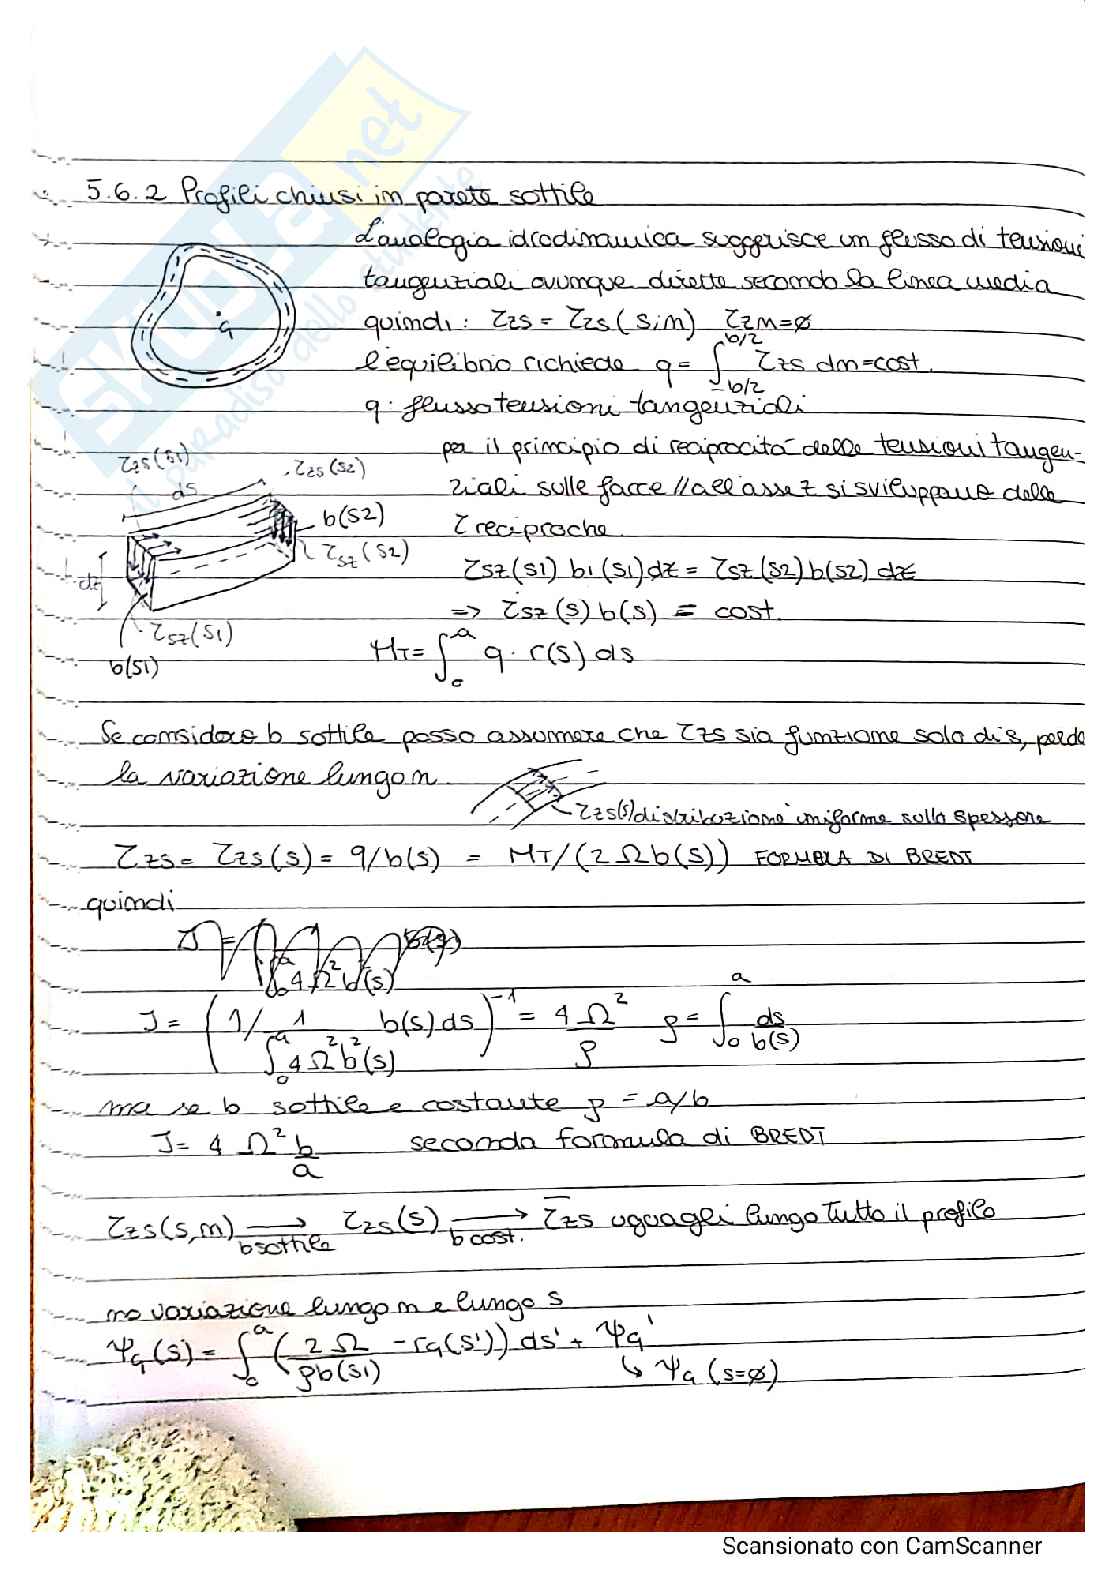 SKUOLA.net
il paradiso dello studente
5.6.2 Profili chiusi in parete sottile
L'analogia idrodinamica suggerisce un flusso di tensioni
tangenziali ovunque dirette secondo la linea media
quindi: τzs = τzs(s,n) τzn=ø
l'equilibrio richiede q = ∫_{-b/2}^{b/2} τzs dn = cost.
G
q: flusso tensioni tangenziali
per il principio di reciprocità delle tensioni tangen-
ziali sulle facce // all'asse z si sviluppano delle
τ reciproche.
τzs(s1) τzs(s2)
ds
b(s2)
τsz(s2)
dz
τsz(s1)
b(s1)
τsz(s1) b1(s1) dz = τsz(s2) b(s2) dz
=> τsz(s) b(s) = cost.
MT = ∫_0^a q · r(s) ds
Se considero b sottile posso assumere che τzs sia funzione solo di s, perdo
la variazione lungo n.
τzs(s) distribuzione uniforme sullo spessore
τzs = τzs(s) = q/b(s) = MT/(2Ωb(s)) FORMULA DI BREDT
quindi
J = (1/∫_0^a 1/(4Ω²b²(s)) b(s) ds)^-1 = 4Ω²/ρ ρ = ∫_0^a ds/b(s)
ma se b sottile e costante ρ = a/b
J = 4Ω² b/a seconda formula di BREDT
τzs(s,n) → b sottile τzs(s) → b cost. τ̄zs uguagli lungo tutto il profilo
no variazione lungo n e lungo s
ΨG(s) = ∫_0^a (2Ω/ρb(s1) - rG(s')) ds' + ΨG'
↳ ΨG(s=ø)
Scansionato con CamScanner